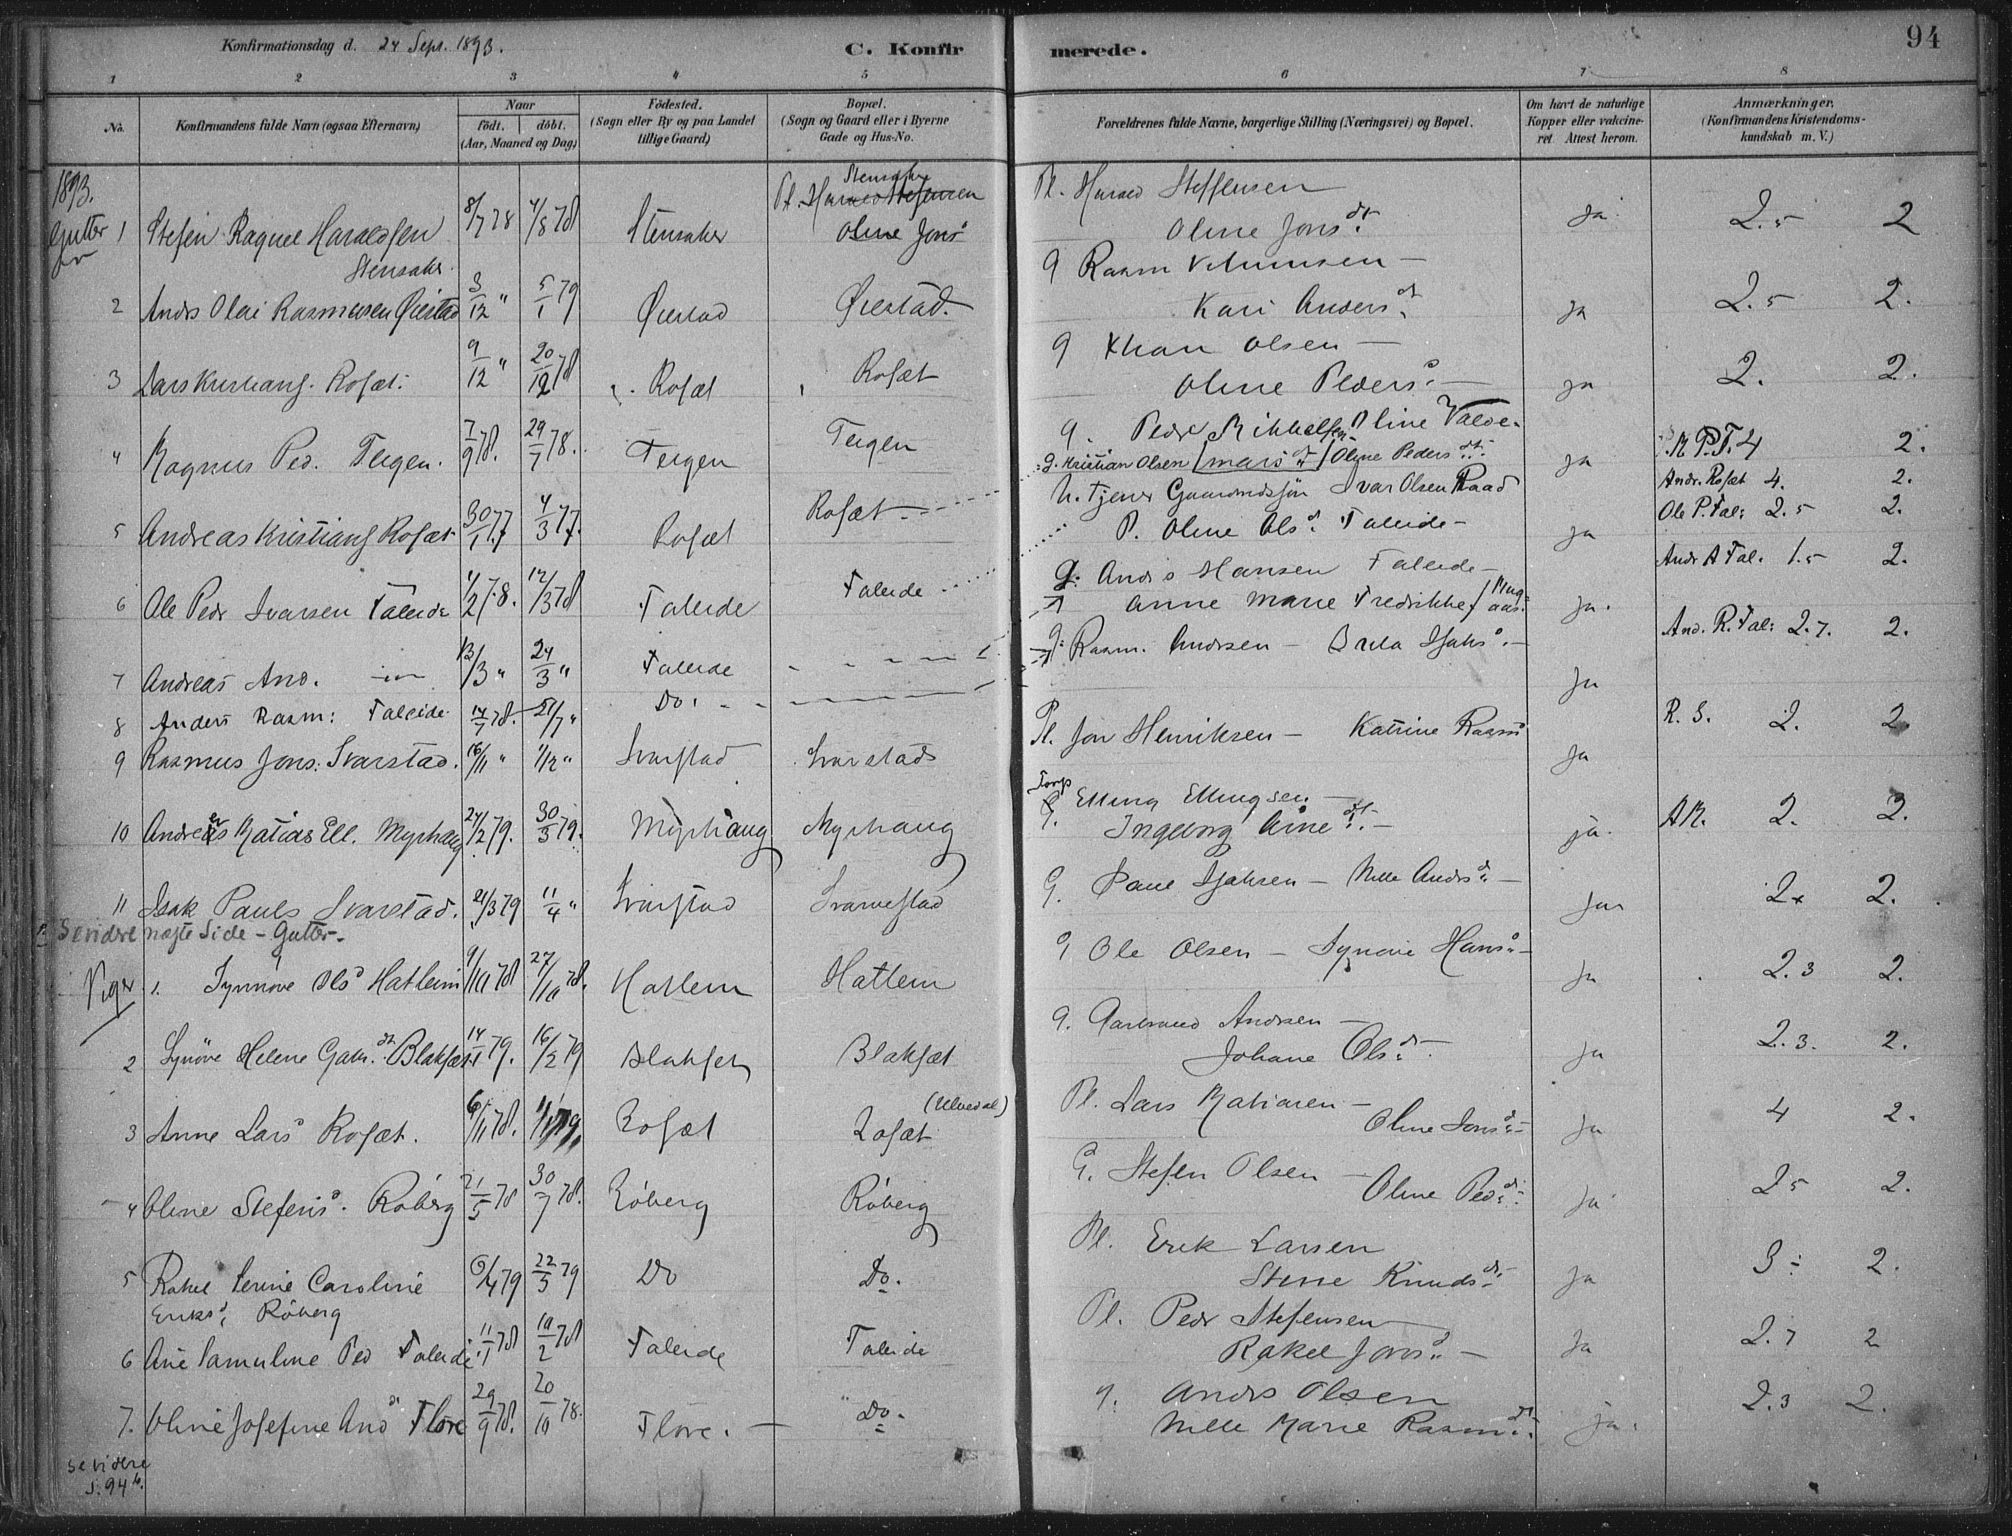 Konfirmationsdag d. 24 Sept. 1893.
C. Konfir
merede.
94
1 2 3 4 5 6 7 8
No.
Konfirmandens fulde Navn (ogsaa Efternavn)
Naar
födt. döbt.
(Aar, Maaned og Dag)
Födested.
(Sogn eller By og paa Landet
tillige Gaard)
Bopæl.
(Sogn og Gaard eller i Byerne
Gade og Hus-No.
Forældrenes fulde Navne, borgerlige Stilling (Næringsvei) og Bopæl.
Om havt de naturlige
Kopper eller vakcine-
ret. Attest herom.
Anmærkninger.
(Konfirmandens Kristendoms-
kundskab m. V.)
1893.
Gutter
1 Stefen Ragnel Haraldsen Stensaker. 8/7 78 4/8 78 Stensaker Stensaker Oline Jons Pl. Harald Steffensen Oline Jonsdt. ja 2.5 2
2 Andrs Olai Rasmussen Øiestad 3/12 " 5/1 79 Øiestad Øiestad. g Rasm Kari Andersdt. ja 2.5 2.
3 Lars Kristians. Rosæt. 9/12 " 20/12 78 Rosæt Rosæt g Olsen Oline Peders ja 2. 2.
4 Magnus Ped. Teigen. 7/9 78. 29/7 78. Teigen Teigen g. Pedr Mikkelsen Oline Valde- [marsdt] ja M P. T. 4 2.
5 Andreas Kristians Rosæt 30/1 77 4/3 77. Rosæt Rosæt g. Kristian Olsen Oline Pedersdt. ja Andr. Rosæt 4. 2.
6 Ole Pedr Ivarsen Taleide 1/2 78. 17/3 78 Taleide Taleide U. Tjener Ivar Olsen Raad P. Oline Ols. Taleide ja. Ole P. Tal: 2.5 2.
7 Andreas And. 13/3 " 24/3 " Taleide g. Andrs Hansen Taleide Anne Marie Fredrikke ja Andr A Tal. 1.5 2.
8 Anders Rasm: Taleide 14/7 78. 21/7 " Do. g. Rasm. Andrsen And. R. Tal: 2.7. 2.
9 Rasmus Jons: Ivarstad. 16/11 " 1/12 " Ivarstad Ivarstad Pl. Jon Henriksen Katrine Rasms ja R. S. 2. 2
10 Andreas Matias Ell. Myrhaug 24/2 79. 30/3 79. Myrhaug Myrhaug Elling Ellingsen Ingeborg Arnedt. ja. AM. 2. 2.
11 Isak Pauls Ivarstad. 21/3 79 11/4 " Ivarstad Ivarrestad G. Paul Isaksen Nelle Andrs ja 2 2.
Se videre næste Side - Gutter.
Piger
1. Synnøve Ols Hatlem 9/10 78 27/10 78. Hatlem Hatlem g Ole Olsen Synøve Hans ja 2.3 2.
2 Synøve Helene Gabr.dt Blaksæt 14/1 79. 16/2 79 Blaksæt Blaksæt g. Andrsen Johane Ols ja 2.3. 2.
3 Anne Lars Rosæt. 6/11 78. Rosæt (Ulvedal) Rosæt Pl. Lars Matiasen Oline Jons ja 4 2.
4 Oline Stefens. Røberg 21/5 78 30/7 78. Røberg Røberg G. Stefen Olsen Oline Ped. ja 2.5 2.
5 Rakel Serine Caroline Eriks: Røberg 6/4 79 22/5 79 Do Do. Pl. Erik Larsen Stine Knuds ja 3 - 2.
6 Ane Samuline Ped Taleide 11/1 78 10/2 78 Taleide Taleide Pl. Pedr Stefensen Rakel Jons ja 2.7 2
7. Oline Josefine And Flore 29/9 78. 20/10 78. Flore. Do. g. Andrs Olsen Nelle Marie Rasm. ja. 2.3 2.
se videre
s. 94 b.